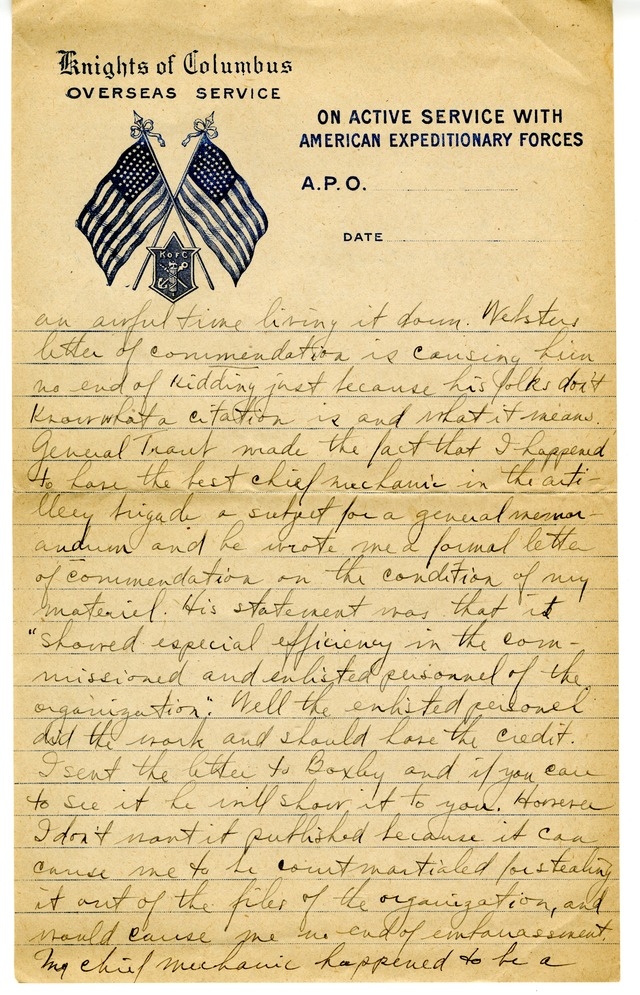 Knights of Columbus
OVERSEAS SERVICE
ON ACTIVE SERVICE WITH
AMERICAN EXPEDITIONARY FORCES
A.P.O.
DATE
K of C
an awful time living it down. Websters
letter of commendation is causing him
no end of kidding just because his folks don't
know what a citation is and what it means.
General Traut made the fact that I happened
to have the best chief mechanic in the arti-
llery brigade a subject for a general memor-
andum and he wrote me a formal letter
of commendation on the condition of my
materiel. His statement was that it
"showed especial efficiency in the com-
missioned and enlisted personnel of the
organization". Well the enlisted personel
did the work and should have the credit.
I sent the letter to Boxley and if you care
to see it he will show it to you. However
I don't want it published because it can
cause me to be courtmartialed for stealing
it out of the files of the organization, and
would cause me no end of embarassment.
My chief mechanic happened to be a